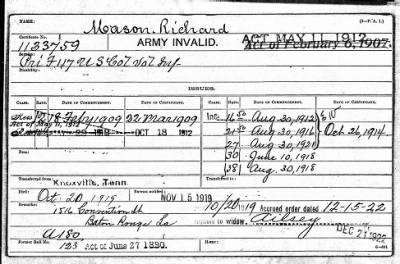 Mason, Richard
Certificate No.
1133759
ARMY INVALID.
ACT MAY 11, 1912.
Act of February 6, 1907.
Service:
Pri F 117 U S Col'd Vol Inf
Disability:
ISSUES.
CLASS.
DATE OF COMMENCEMENT.
DATE OF CERTIFICATE.
RATE.
DATE OF COMMENCEMENT.
DATE OF CERTIFICATE.
Feby 1909
22 Mar 1909
Act of May 11, 1912
OCT 18 1912
Inc.
16 50
Aug 30, 1912
21 50
Aug 30, 1916
Oct 26, 1914
27
Aug 30, 1921
30
June 10, 1918
38
Aug. 30, 1918
Transferred from
Knoxville, Tenn.
Died
Oct 20 1919
Bureau notified
NOV 15 1919
10/20/1919
Accrued order dated 12-15-22
Convention St
Baton Rouge La
to widow,
Ailsey
DEC 21 1922
A180
Former Roll No.
123
Act of June 27 1890.